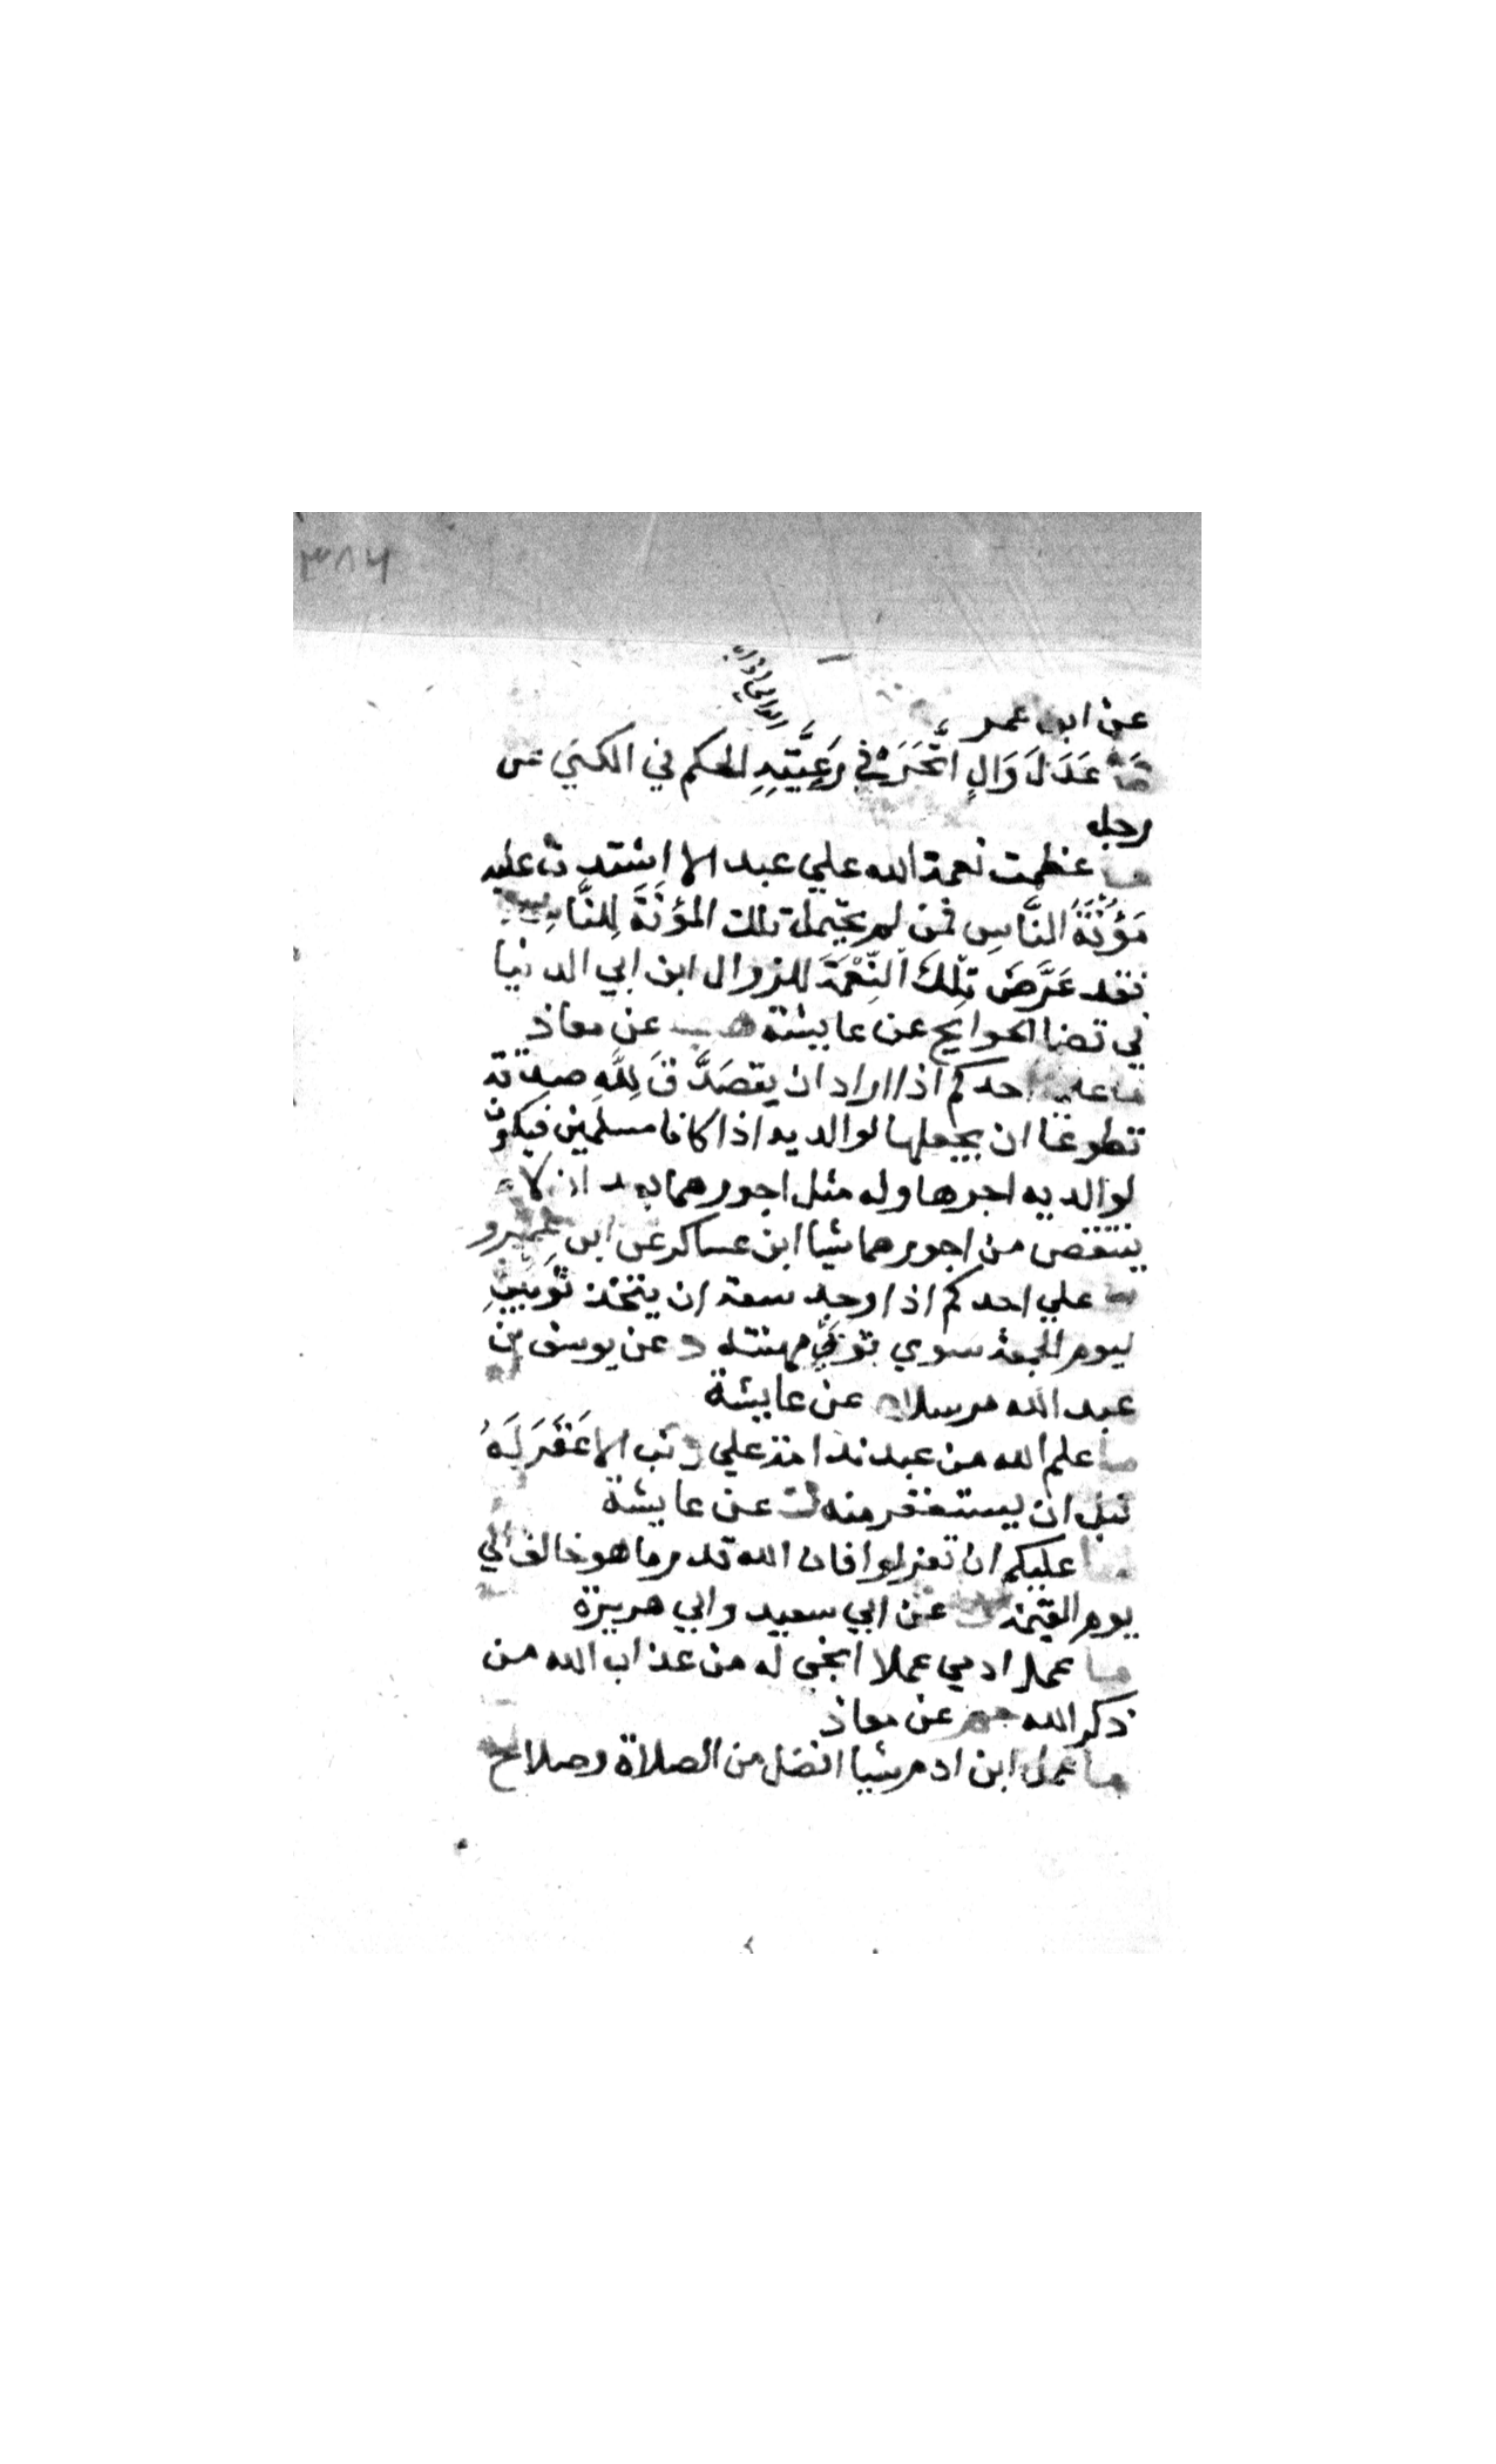 ٣٨٦
عن ابن عمر
ما عَدَلَ وَالٍ اتَّجَرَ في رَعِيَّتِهِ الحكم في الكني عن
رجل
ما عظمت نعمة الله علي عبد الا اشتدت عليه
مَؤُنَةُ النَّاسِ فمن لم يحتمل تلك المؤنَةَ لِلنَّاسِ
فقد عَرَّضَ تِلْكَ النِّعْمَةَ للزوال ابن ابي الدنيا
في قضا الحوايج عن عايشة هب عن معاذ
ما علي احدكم اذا اراد ان يتصَدَّقَ لِلَّهِ صدقة
تطوعا ان يجعلها لوالديه اذا كانا مسلمين فيكون
لوالديه اجرها وله مثل اجورهما بعد ان لا
ينتقص من اجورهما شيا ابن عساكر عن ابن عمرو
ما علي احدكم اذا وجد سعة ان يتخذ ثوبين
ليوم الجمعة سوي ثوبي مهنته د عن يوسف بن
عبد الله بن سلام ه عن عايشة
ما علم الله من عبد ندامة علي ذنب الا غَفَرَ لَهُ
قبل ان يستغفر منه ك عن عايشة
ما عليكم ان تعزلوا فان الله قدر ما هو خالف الي
يوم القيمة عن ابي سعيد وابي هريرة
ما عمل ادمي عملا انجي له من عذاب الله من
ذكر الله حم عن معاذ
ما عمل ابن ادم شيا افضل من الصلاة وصلاح